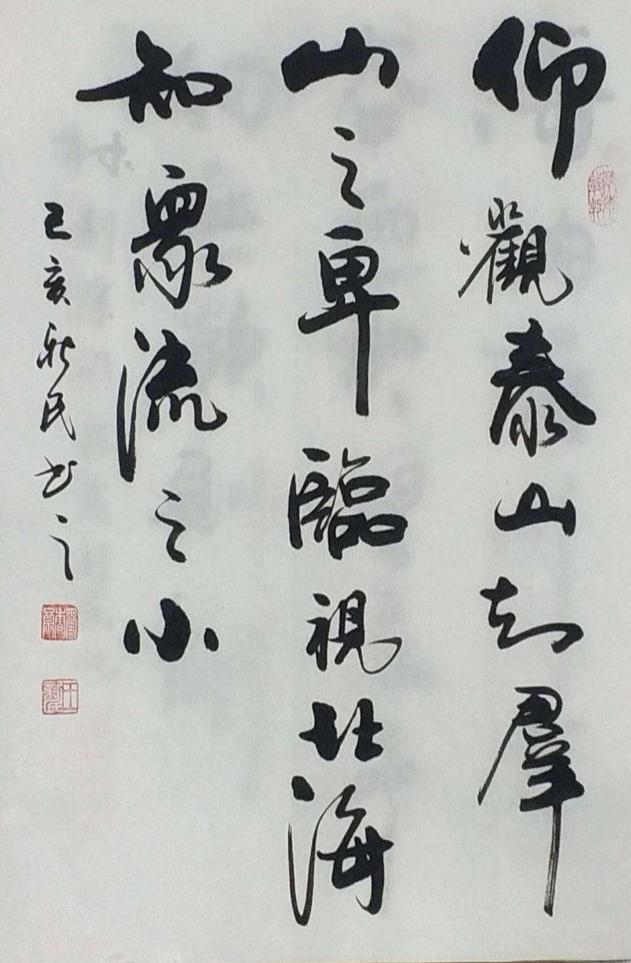 仰觀泰山知羣
山之卑臨視北海
知衆流之小
己亥新民书之